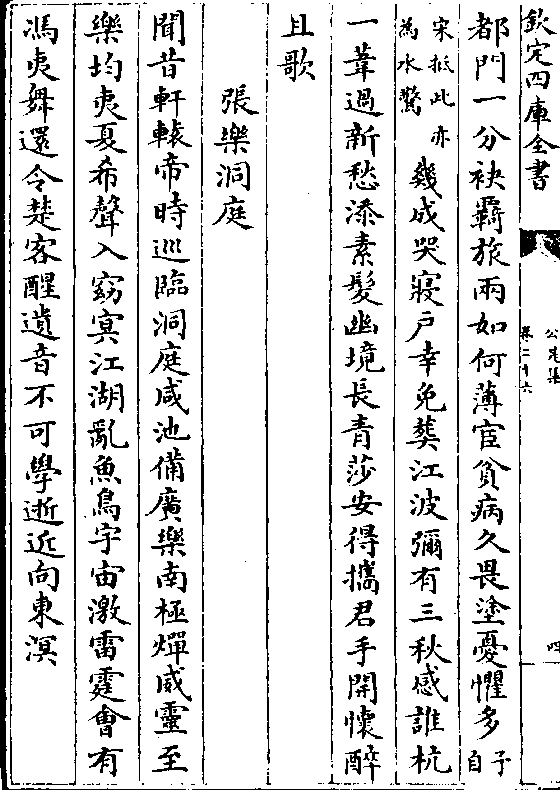 欽定四庫全書
公是集
卷二十六
四
都門一分袂覊旅兩如何薄宦貧病久畏塗憂懼多子自
宋抵此亦為水驚幾成哭寢户幸免葬江波彌有三秋感誰杭
一葦過新愁添素髮幽境長青莎安得攜君手開懷醉
且歌
張樂洞庭
聞昔軒轅帝時巡臨洞庭咸池備廣樂南極燀威靈至
樂均夷夏希聲入窈㝠江湖亂魚鳥宇宙激雷霆會有
馮夷舞還令楚客醒遺音不可學逝近向東溟